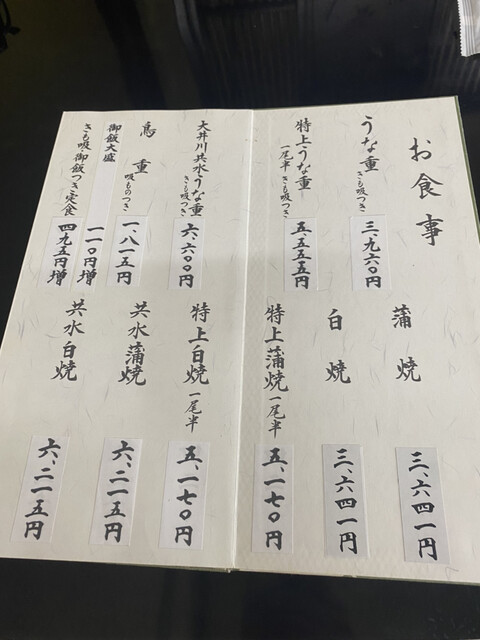 お食事
うな重 きも吸つき 三、九六〇円
特上うな重 一尾半 きも吸つき 五、五五五円
大井川共水うな重 きも吸つき 六、六〇〇円
鳥重 吸ものつき 一、八一五円
御飯大盛 一一〇円増
きも吸御飯つき定食 四九五円増
蒲焼 三、六四一円
白焼 三、六四一円
特上蒲焼 一尾半 五、一七〇円
特上白焼 一尾半 五、一七〇円
共水蒲焼 六、二一五円
共水白焼 六、二一五円